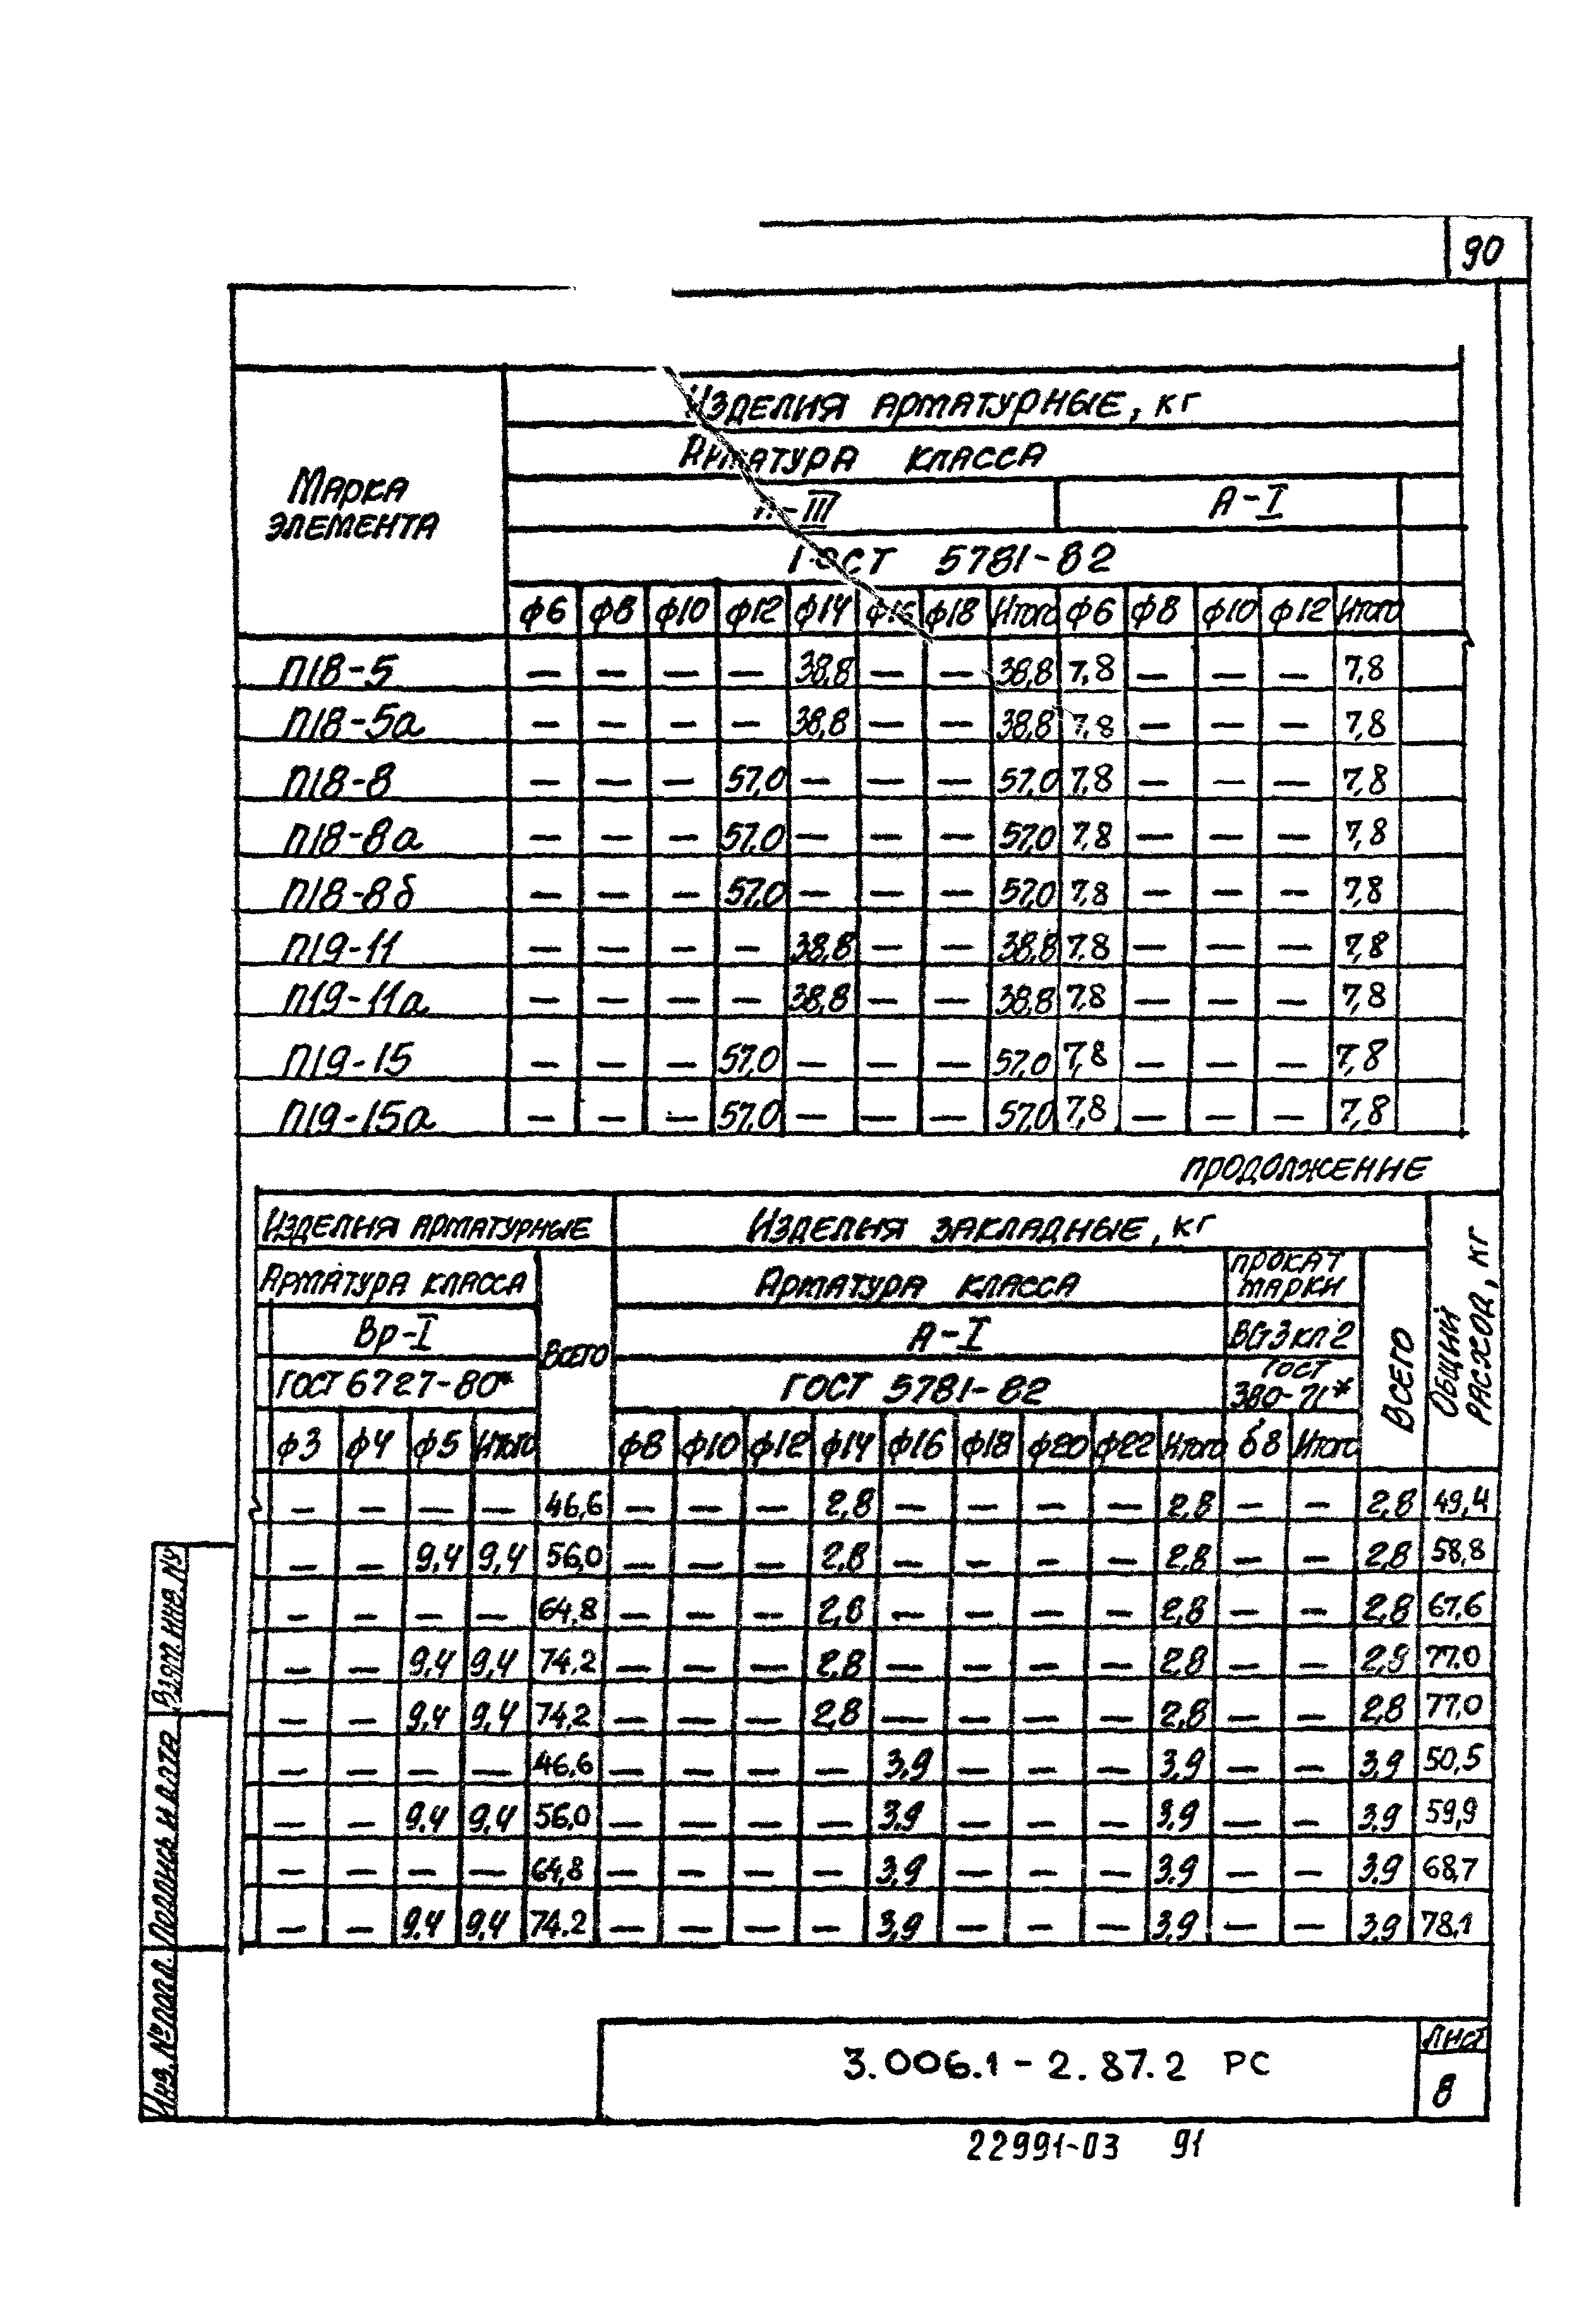 90
Изделия арматурные, кг
Арматура класса
Марка элемента
А-III А-I
ГОСТ 5781-82
ф6 ф8 ф10 ф12 ф14 ф16 ф18 Итого ф6 ф8 ф10 ф12 Итого
П18-5 — — — — 38,8 — — 38,8 7,8 — — — 7,8
П18-5а — — — — 38,8 — — 38,8 7,8 — — — 7,8
П18-8 — — — 57,0 — — — 57,0 7,8 — — — 7,8
П18-8а — — — 57,0 — — — 57,0 7,8 — — — 7,8
П18-8б — — — 57,0 — — — 57,0 7,8 — — — 7,8
П19-11 — — — — 38,8 — — 38,8 7,8 — — — 7,8
П19-11а — — — — 38,8 — — 38,8 7,8 — — — 7,8
П19-15 — — — 57,0 — — — 57,0 7,8 — — — 7,8
П19-15а — — — 57,0 — — — 57,0 7,8 — — — 7,8
продолжение
Изделия арматурные Изделия закладные, кг Общий расход, кг
Арматура класса Всего Арматура класса прокат марки Всего
Вр-I А-I ВСт3кп2
ГОСТ 6727-80* ГОСТ 5781-82 ГОСТ 380-71*
ф3 ф4 ф5 Итого ф8 ф10 ф12 ф14 ф16 ф18 ф20 ф22 Итого б8 Итого
— — — — 46,6 — — — 2,8 — — — — 2,8 — — 2,8 49,4
— — 9,4 9,4 56,0 — — — 2,8 — — — — 2,8 — — 2,8 58,8
— — — — 64,8 — — — 2,8 — — — — 2,8 — — 2,8 67,6
— — 9,4 9,4 74,2 — — — 2,8 — — — — 2,8 — — 2,8 77,0
— — 9,4 9,4 74,2 — — — 2,8 — — — — 2,8 — — 2,8 77,0
— — — — 46,6 — — — — 3,9 — — — 3,9 — — 3,9 50,5
— — 9,4 9,4 56,0 — — — — 3,9 — — — 3,9 — — 3,9 59,9
— — — — 64,8 — — — — 3,9 — — — 3,9 — — 3,9 68,7
— — 9,4 9,4 74.2 — — — — 3,9 — — — 3,9 — — 3,9 78,1
Взят. инв. №
Подпись и дата
Инв. № подл.
3.006.1-2.87.2 РС
Лист
8
22991-03 91